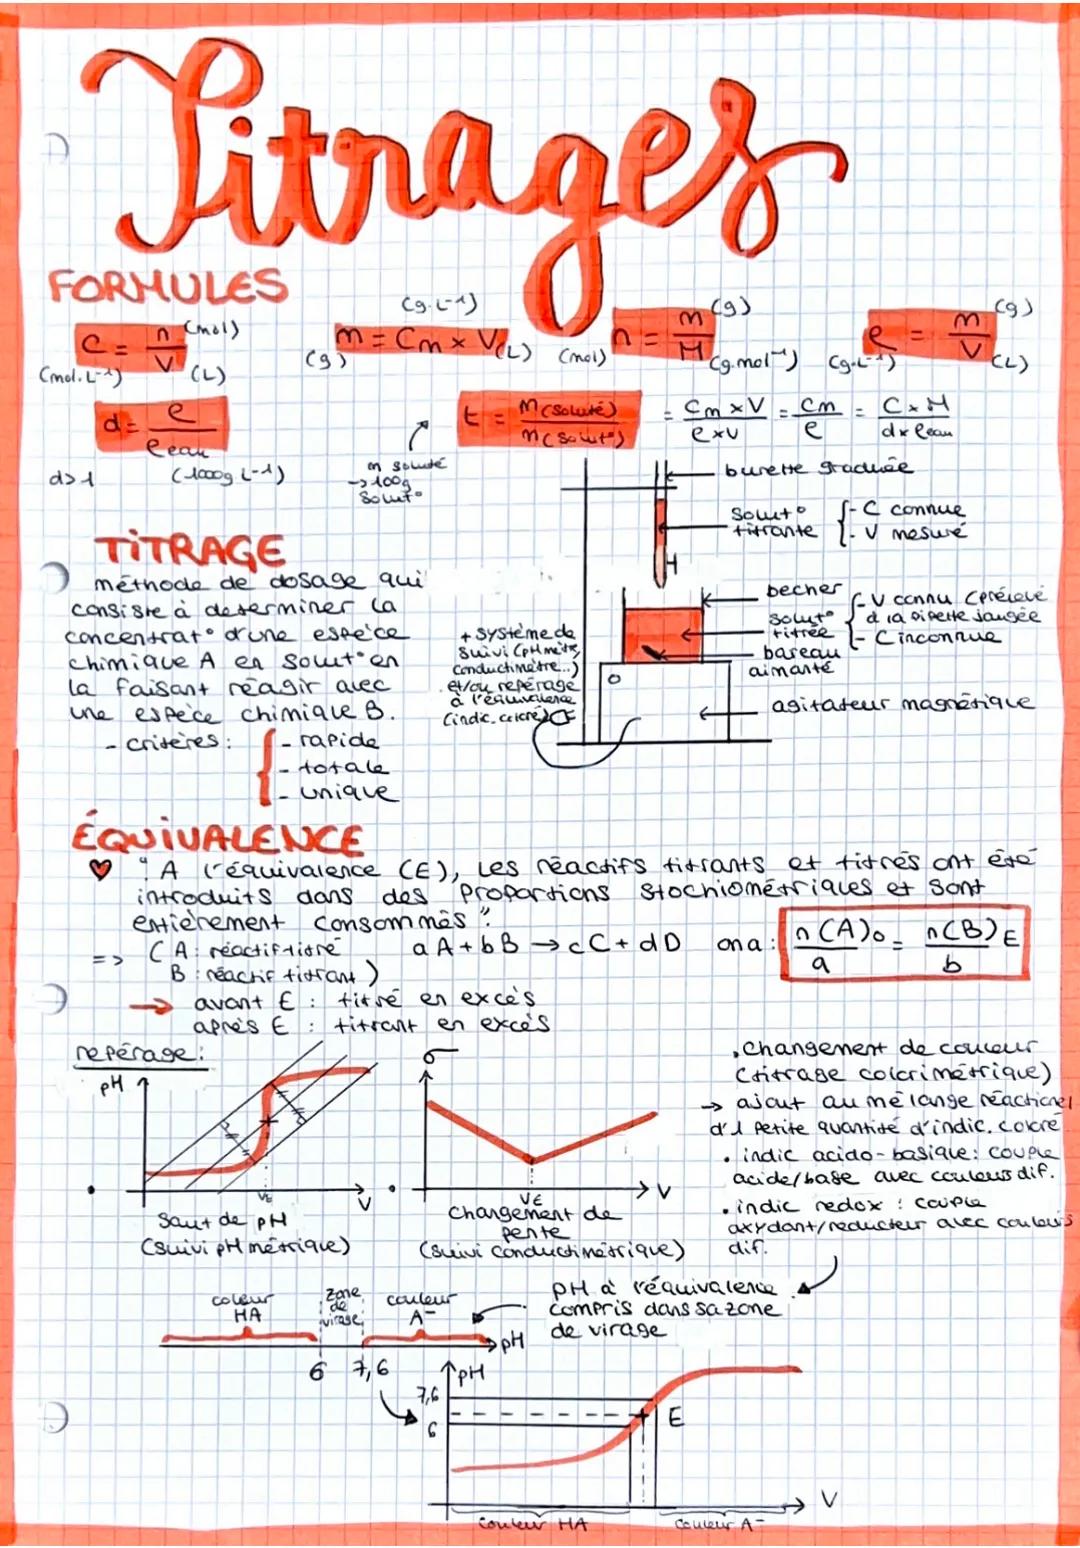 Titrages
FORMULES
C = n/V (mol) (mol.L-1) (L)
m = Cm x V (g.L-1) (g) (L)
n = m/M (g) (mol) (g.mol-1)
ρ = m/V (g) (g.L-1) (L)
d = ρ/ρeau
d>1 (1000g L-1)
t = m(soluté)/m(solut°) = Cm x V/ρ x V = Cm/ρ = C x M/d x ρeau
m soluté
-> 100g
solut°
burette graduée
solut° titrante { - C connue
- V mesuré
becher
solut° titrée { - V connu (prélevé
à la pipette jaugée
- C inconnue
bareau
aimanté
agitateur magnétique
+ système de
suivi (pH mètre,
conductimètre...)
et/ou repérage
à l'équivalence
(indic. coloré)
TiTRAGE
méthode de dosage qui
consiste à determiner la
concentrat° d'une espèce
chimique A en solut° en
la faisant réagir avec
une espèce chimique B.
- critères : { - rapide
- totale
- unique
ÉQUiVALENCE
♥ "A l'équivalence (E), les réactifs titrants et titrés ont été
introduits dans des proportions stochiométriques et sont
entièrement consommés".
=> (A: réactif titré
B: réactif titrant)
aA + bB → cC + dD on a : n(A)0/a = n(B)E/b
→ avant E : titré en excès
après E : titrant en excès
repérage :
pH
VE
V
• Saut de pH
(suivi pHmétrique)
σ
VE
V
• Changement de
pente
(suivi conductimétrique)
. Changement de couleur
(titrage colorimétrique)
→ ajout au mélange réactionel
d'1 petite quantité d'indic. coloré
. indic acido-basique: couple
acide/base avec couleurs dif.
. indic redox : couple
oxydant/reducteur avec couleurs
dif.
pH à l'équivalence
compris dans sa zone
de virage
couleur
HA
zone
de
virage
couleur
A-
pH
6 7,6
pH
7,6
6
E
V
couleur HA
couleur A-